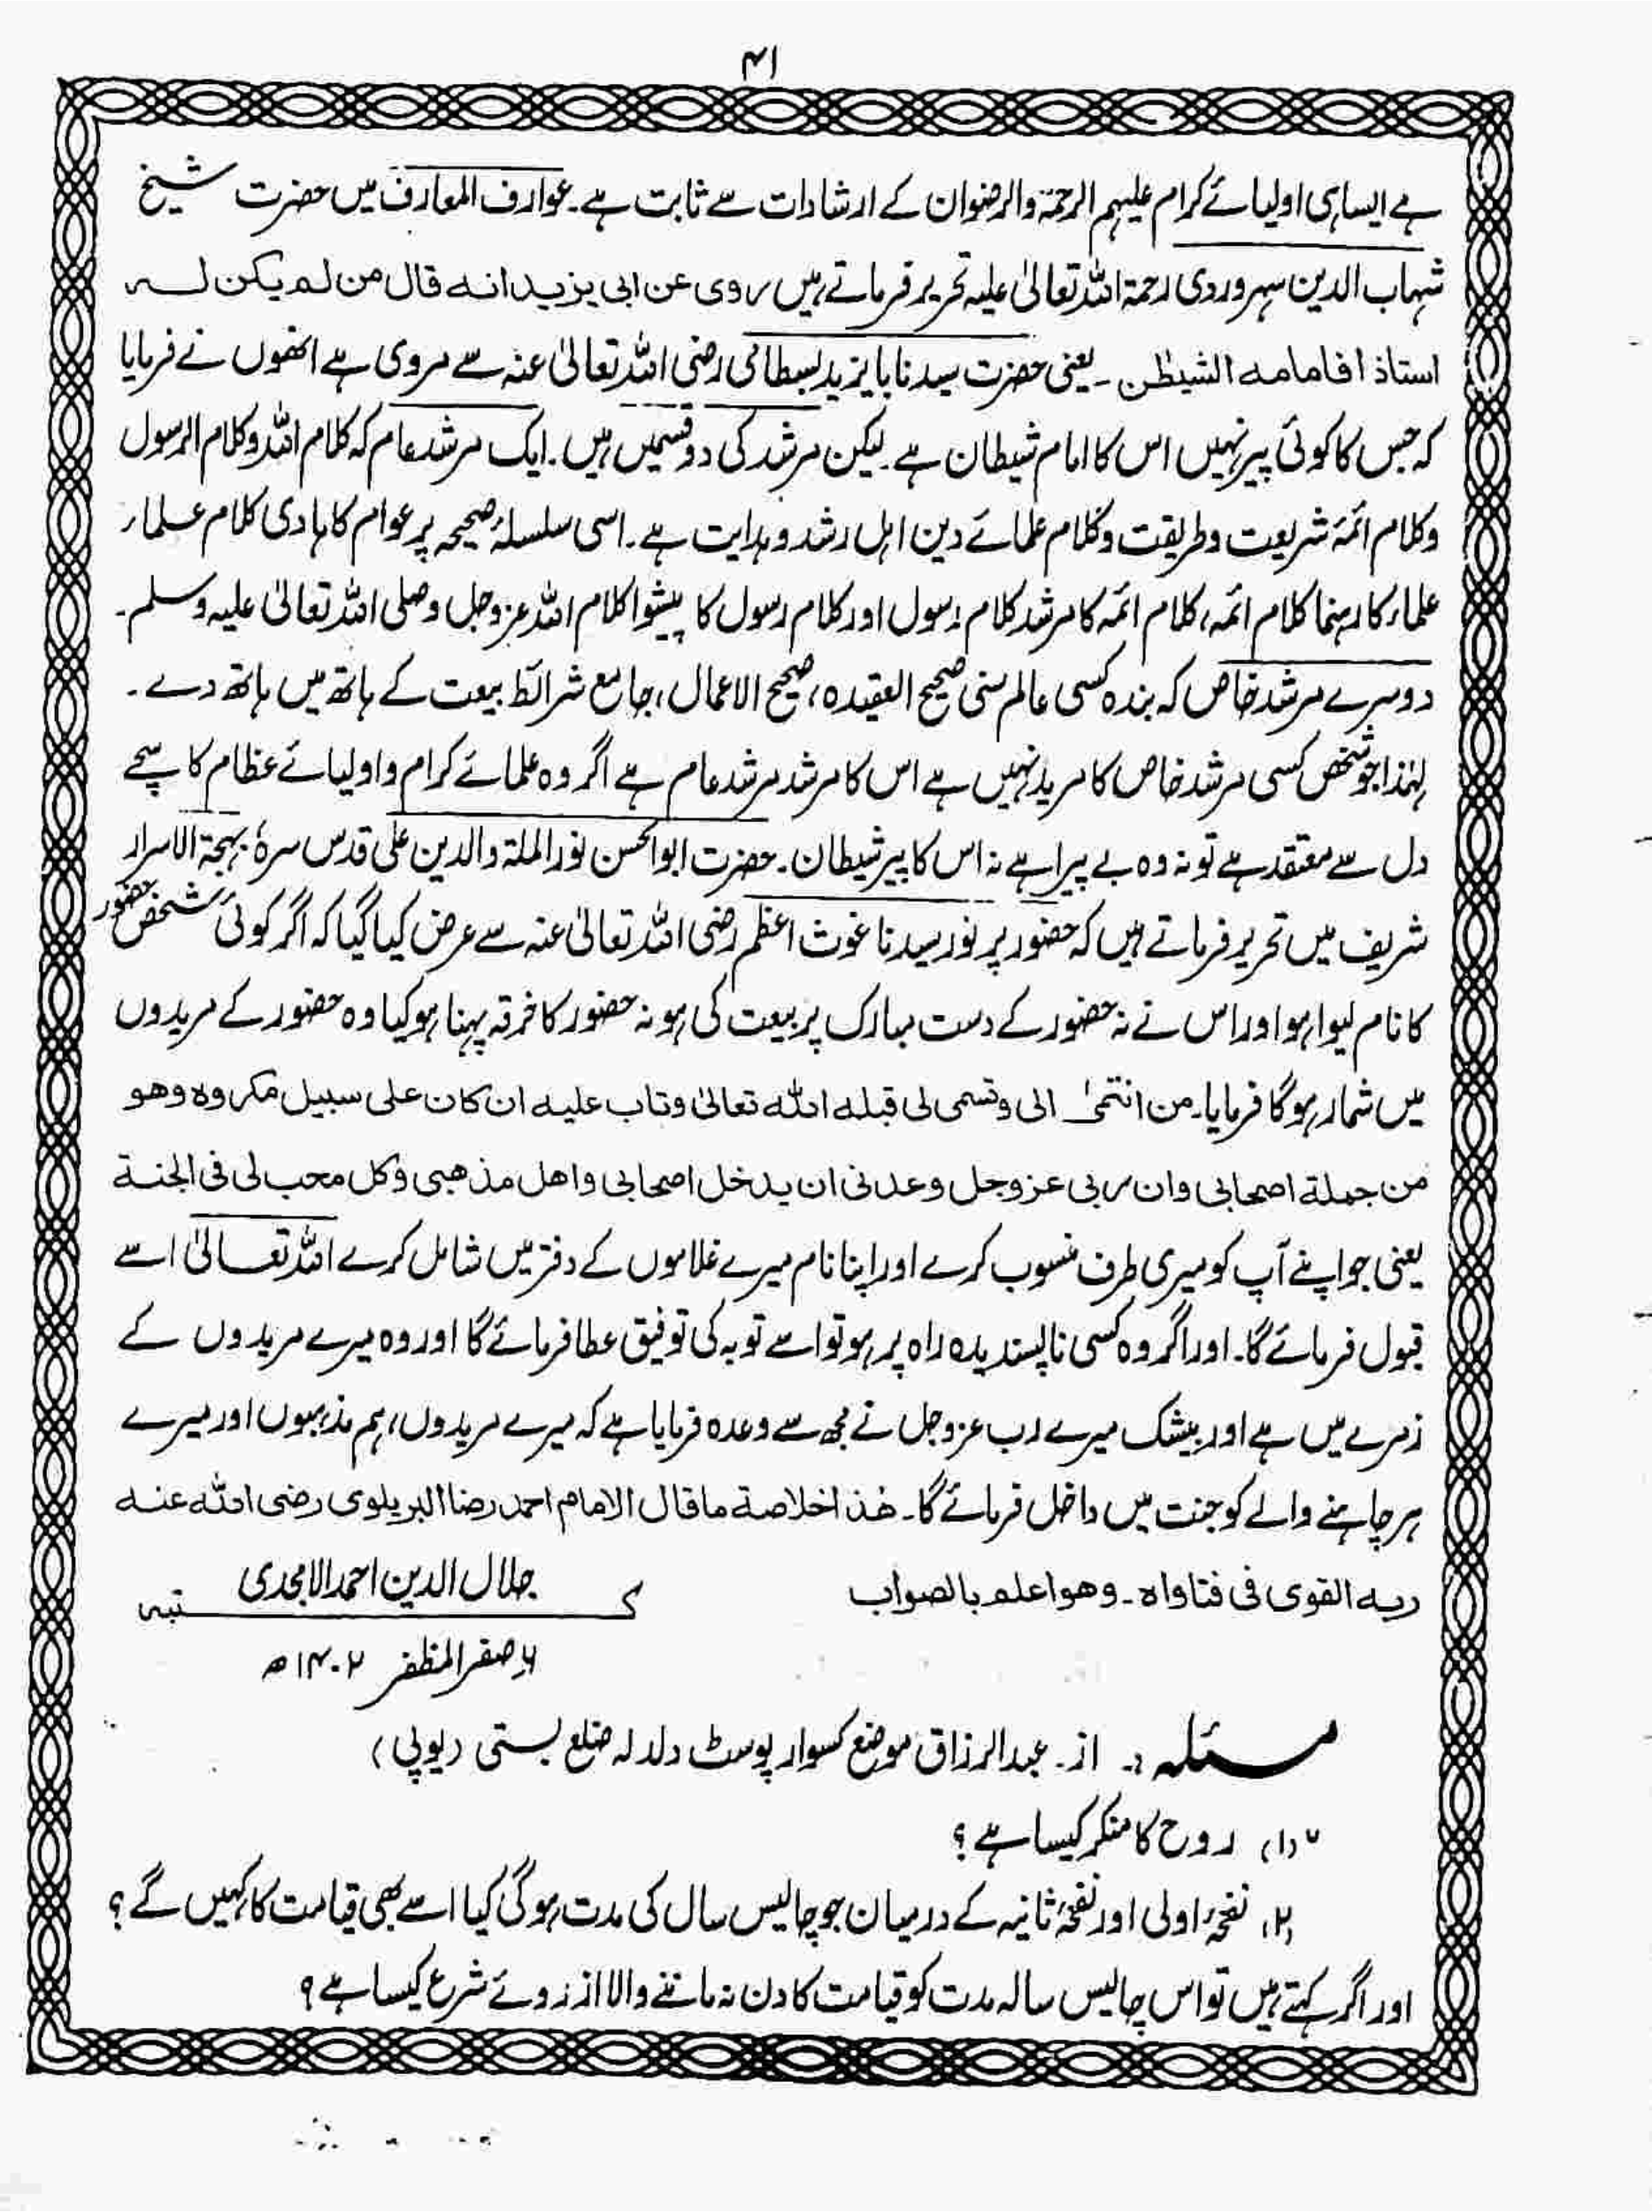 ۴۱
ہے ایسا ہی اولیائے کرام علیہم الرحمۃ والرضوان کے ارشادات سے ثابت ہے۔ عوارف المعارف میں حضرت شیخ
شہاب الدین سہروردی رحمۃ اللہ تعالیٰ علیہ تحریر فرماتے ہیں روی عن ابی یزید انہ قال من لم یکن لہ
استاذ افامامہ الشیطٰن ۔ یعنی حضرت سیدنا بایزید بسطامی رضی اللہ تعالیٰ عنہ سے مروی ہے انھوں نے فرمایا
کہ جس کا کوئی پیر نہیں اس کا امام شیطان ہے۔ لیکن مرشد کی دو قسمیں ہیں۔ ایک مرشد عام کہ کلام اللہ وکلام الرسول
وکلام ائمۂ شریعت وطریقت وکلام علمائے دین اہل رشد و ہدایت ہے۔ اسی سلسلۂ صحیحہ پر عوام کا ہادی کلام علماء
علماء کا رہنما کلام ائمہ، کلام ائمہ کا مرشد کلام رسول اور کلام رسول کا پیشوا کلام اللہ عزوجل وصلی اللہ تعالیٰ علیہ وسلم۔
دوسرے مرشد خاص کہ بندہ کسی عالم سنی صحیح العقیدہ، صحیح الاعمال، جامع شرائط بیعت کے ہاتھ میں ہاتھ دے۔
لہٰذا جو شخص کسی مرشد خاص کا مرید نہیں ہے اس کا مرشد مرشد عام ہے اگر وہ علمائے کرام و اولیائے عظام کا سچے
دل سے معتقد ہے تو نہ وہ بے پیرا ہے نہ اس کا پیر شیطان۔ حضرت ابوالحسن نورالملۃ والدین علی قدس سرہٗ بہجۃ الاسرار
شریف میں تحریر فرماتے ہیں کہ حضور پر نور سیدنا غوث اعظم رضی اللہ تعالیٰ عنہ سے عرض کیا گیا کہ اگر کوئی شخص حضور
کا نام لیوا ہو اور اس نے نہ حضور کے دست مبارک پر بیعت کی ہو نہ حضور کا خرقہ پہنا ہو کیا وہ حضور کے مریدوں
میں شمار ہوگا فرمایا۔ من انتمیٰ الی وتسمی لی قبلہ اللہ تعالیٰ وتاب علیہ ان کان علی سبیل مکروہ وھو
من جملۃ اصحابی وان ربی عزوجل وعدنی ان یدخل اصحابی واھل مذھبی وکل محب لی فی الجنۃ
یعنی جو اپنے آپ کو میری طرف منسوب کرے اور اپنا نام میرے غلاموں کے دفتر میں شامل کرے اللہ تعالیٰ اسے
قبول فرمائے گا۔ اور اگر وہ کسی ناپسندیدہ راہ پر ہو تو اسے توبہ کی توفیق عطا فرمائے گا اور وہ میرے مریدوں کے
زمرے میں ہے اور بیشک میرے رب عزوجل نے مجھ سے وعدہ فرمایا ہے کہ میرے مریدوں، ہم مذہبوں اور میرے
ہر چاہنے والے کو جنت میں داخل فرمائے گا۔ ھٰذا خلاصۃ ماقال الامام احمد رضا البریلوی رضی اللہ عنہ
ربہ القوی فی فتاواہ۔ وھو اعلم بالصواب
کتبہ جلال الدین احمد الامجدی
۶؍ صفر المظفر ۱۴۰۲ھ
مسئلہ :۔ از۔ عبدالرزاق موضع کسوار پوسٹ دلدلہ ضلع بستی (یوپی)
(۱) روح کا منکر کیسا ہے؟
(۲) نفخۂ اولی اور نفخۂ ثانیہ کے درمیان جو چالیس سال کی مدت ہوگی کیا اسے بھی قیامت کا کہیں گے؟
اور اگر کہتے ہیں تو اس چالیس سالہ مدت کو قیامت کا دن نہ ماننے والا از روئے شرع کیسا ہے؟